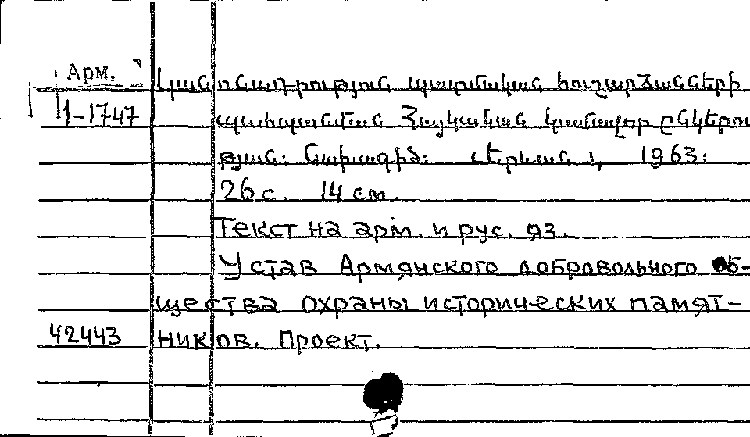 Арм.
1-1747
Կանոնադրություն պատմական հուշարձանների
պահպանման Հայկական կամավոր ընկերու
թյան: Նախագիծ: Երևան, 1963:
26 с. 14 см.
Текст на арм. и рус. яз.
Устав Армянского добровольного об-
щества охраны исторических памят-
ников. Проект.
42443